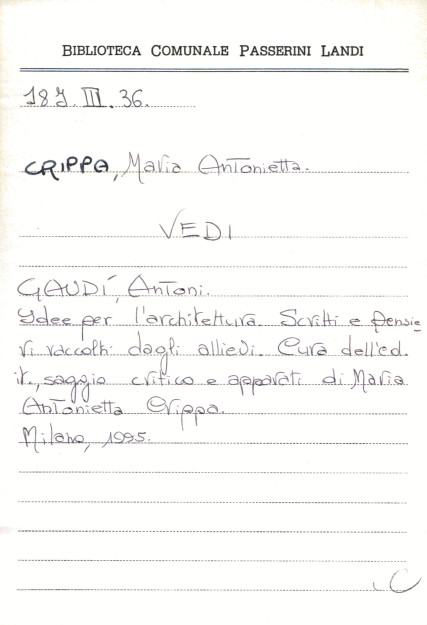 BIBLIOTECA COMUNALE PASSERINI LANDI
18J.III.36.
CRIPPA, Maria Antonietta.
VEDI
GAUDÍ, Antoni.
Idee per l'architettura. Scritti e pensie
ri raccolti dagli allievi. Cura dell'ed.
it., saggio critico e apparati di Maria
Antonietta Crippa.
Milano, 1995.